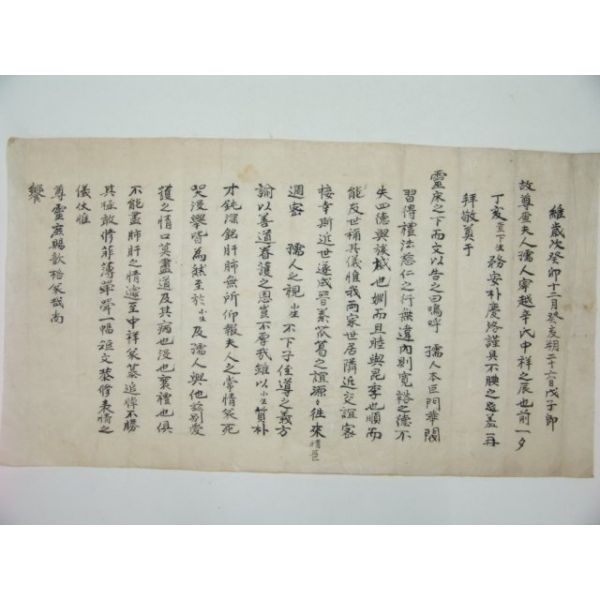 維歲次癸卯十二月癸亥朔二十六日戊子卽
故尊靈夫人孺人寧越辛氏中祥之辰也前一夕
丁亥下生務安朴慶洛謹具不腆之奠盖再
拜敬奠于
靈床之下而文以告之曰嗚呼 孺人本巨門華閥
習得禮法慈仁之行無違內則寬裕之德不
失四德與 也 而且睦與昆季也順而
能反世稱其儀惟我兩家世居隣近交誼客
接幸斯近世遂成晉秦 葛之誼源〻往來情
週客 孺人之視小生不下子侄導之義方
諭以善道眷護之恩豈不厚哉雖以小生質朴
才鈍深銘肝肺無所仰報夫人之常情然死
契活擧皆爲然至於小生及孺人與他 別愛
護之情口莫盡道及其病也沒也襄禮也俱
不能盡肺肝之情逾至中祥哀慕追悼不勝
具 敢脩菲薄 一幅短文 修表情之
儀伏惟
尊靈庶賜歆格哀哉尙
饗